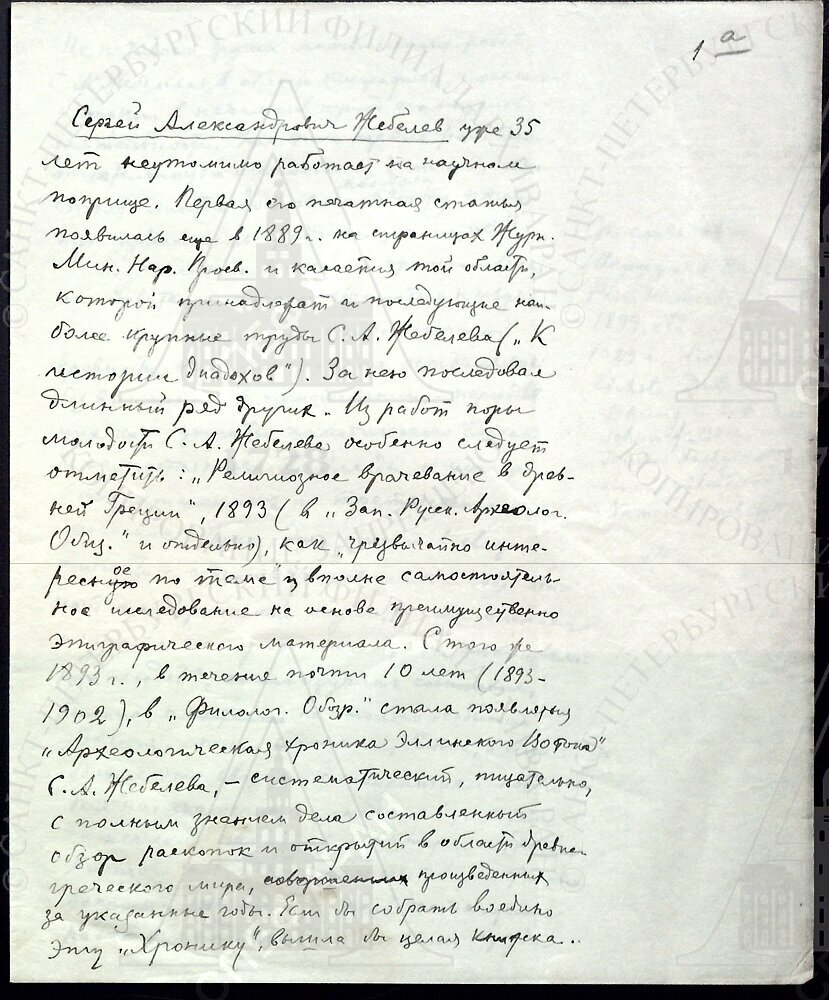 1 а
Сергей Александрович Жебелев уже 35
лет неутомимо работает на научном
поприще. Первая его печатная статья
появилась еще в 1889 г. на страницах Журн.
Мин. Нар. Просв. и касается той области,
которой принадлежат и последующие наи-
более крупные труды С. А. Жебелева („К
истории диадохов"). За нею последовал
длинный ряд других. Из работ поры
молодости С. А. Жебелева особенно следует
отметить: „Религиозное врачевание в древ-
ней Греции", 1893 (в „Зап. Русск. Археолог.
Общ." и отдельно), как „чрезвычайно инте-
ресное по теме" и вполне самостоятель-
ное исследование на основе преимущественно
эпиграфического материала. С того же
1893 г., в течение почти 10 лет (1893-
1902), в „Филолог. Обозр." стала появляться
„Археологическая хроника Эллинского Востока"
С. А. Жебелева, – систематический, тщательно,
с полным знанием дела составленный
обзор раскопок и открытий в области древне-
греческого мира, произведенных
за указанные годы. Если бы собрать воедино
эту „Хронику", вышла бы целая книжка.